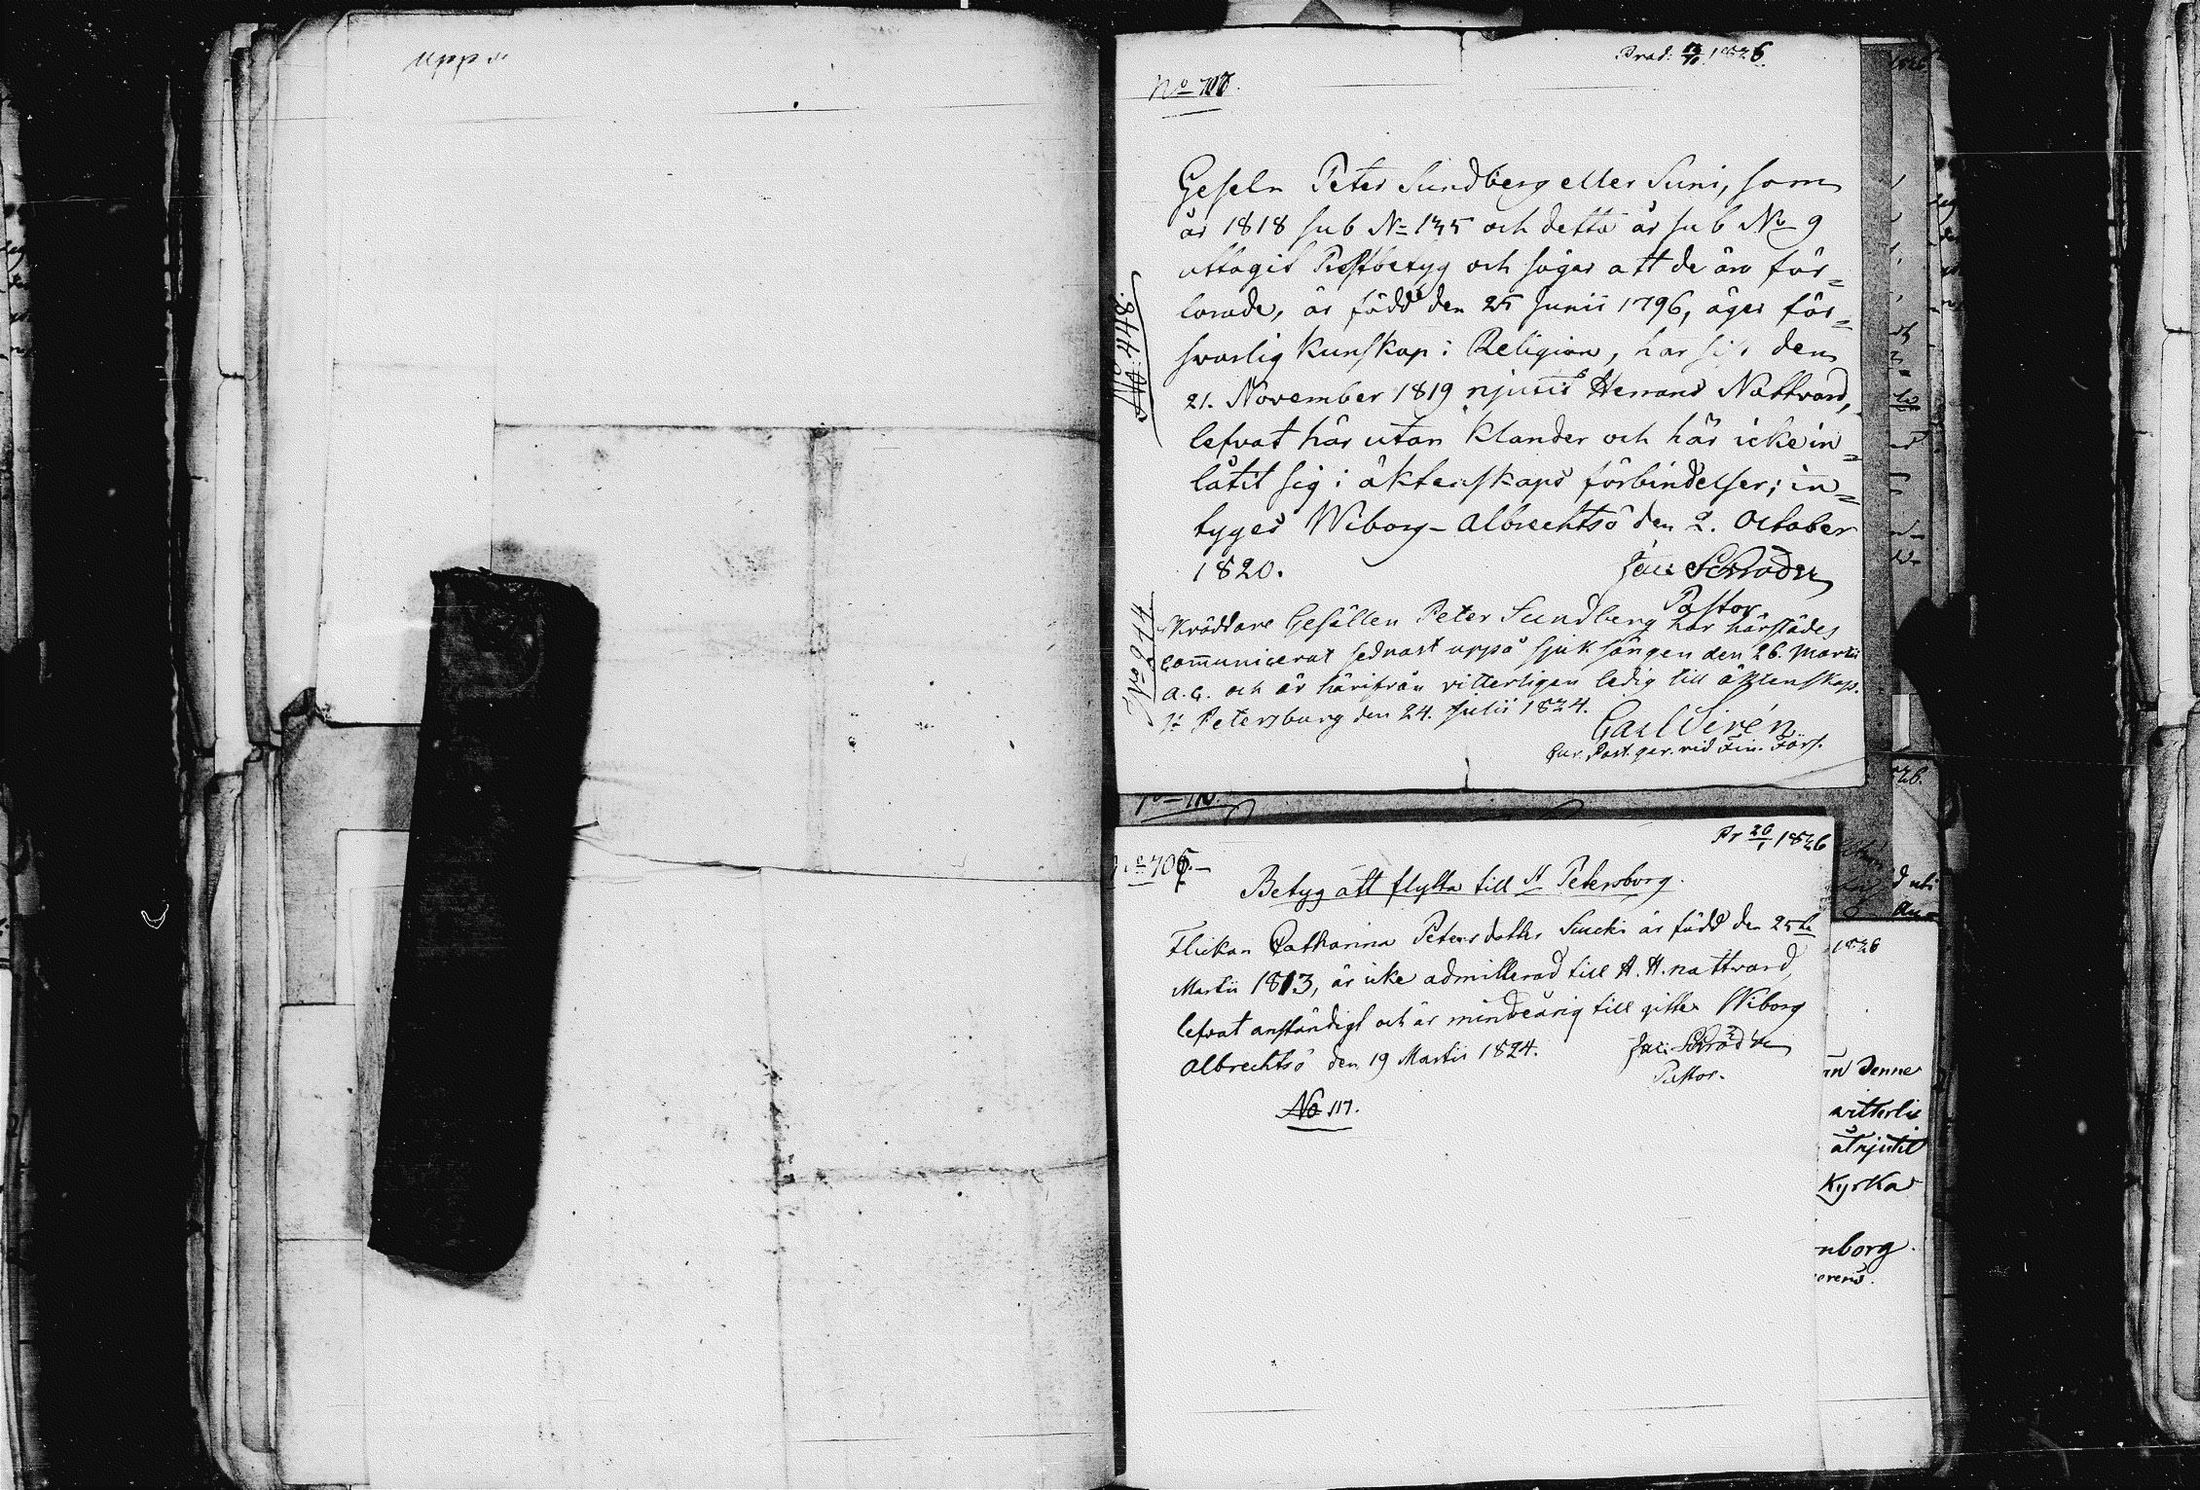 Prod: 19/10 1826
No 707.
Geseln Peter Sundberg eller Suni, som
år 1818 sub No 135 och detta år sub No 9
uttagit Prestbetyg och säger att de äro för=
lorade, är född den 25 Junii 1796, äger för=
svarlig Kunskap i Religion, har sist den
21. November 1819 njutit Herrans Nattvard,
lefvat här utan Klander och här icke in=
låtit sig i äktenskaps förbindelser; in=
tygar Wiborg-Albrechtsö den 2. October
1820.
Jac: Schroder
Pastor.
No: 448.
No 244
Skräddare Gesällen Peter Sundberg har härstädes
communicerat sednast uppå sjuk sängen den 26. Martii
a. c. och är härifrån vitterligen ledig till äktenskap.
St Petersburg den 24. Julii 1824.
Carl Sirén
Cur. Past. ger. vid Fin. Förs.
Pr 20/1 1826
No 706.
Betyg att flytta till St Petersborg.
Flickan Catharina Petersdotter Sucki är född den 25te
Martii 1813, är icke admitterad till H. H. nattvard,
lefvat anständigt och är mindreårig till gifte. Wiborg
Albrechtsö den 19 Martii 1824.
Jac: Schroder
Pastor.
No 117.
1826
denne
vitterli
Kyrka
nborg.